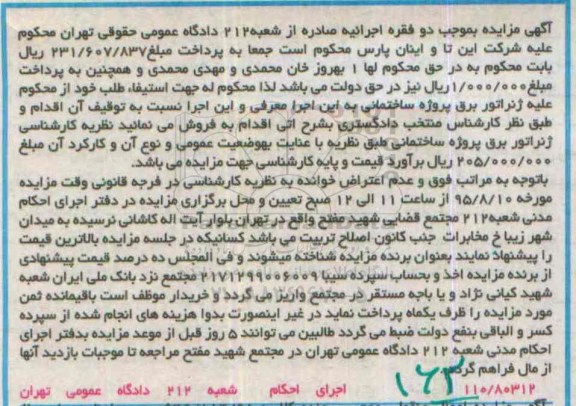 آگهی مزایده بموجب دو فقره اجرائیه صادره از شعبه۲۱۲ دادگاه عمومی حقوقی تهران محکوم
علیه شرکت این تا و اینان پارس محکوم است جمعا به پرداخت مبلغ۲۳۱/۶۰۷/۸۳۷ ریال
بابت محکوم به در حق محکوم لها ۱ بهروز خان محمدی و مهدی محمدی و همچنین به پرداخت
مبلغ۱/۰۰۰/۰۰۰ریال نیز در حق دولت می باشد لذا محکوم له جهت استیفاء طلب خود از محکوم
علیه ژنراتور برق پروژه ساختمانی به این اجرا معرفی و این اجرا نسبت به توقیف آن اقدام و
طبق نظر کارشناس منتخب دادگستری بشرح اتی اقدام به فروش می نمائید نظریه کارشناسی
ژنراتور برق پروژه ساختمانی طبق نظریه با عنایت بهوضعیت عمومی و نوع آن و کارکرد آن مبلغ
۲۰۵/۰۰۰/۰۰۰ ریال برآورد قیمت و پایه کارشناسی جهت مزایده می باشد.
باتوجه به مراتب فوق و عدم اعتراض خوانده به نظریه کارشناسی در فرجه قانونی وقت مزایده
مورخه ۹۵/۸/۱۰ از ساعت ۱۱ الی ۱۲ صبح تعیین و محل برگزاری مزایده در دفتر اجرای احکام
مدنی شعبه۲۱۲ مجتمع قضایی شهید مفتح واقع در تهران بلوار آیت اله کاشانی نرسیده به میدان
شهر زیبا خ مخابرات جنب کانون اصلاح تربیت می باشد کسانیکه در جلسه مزایده بالاترین قیمت
را پیشنهاد نمایند بعنوان برنده مزایده شناخته میشوند و فی المجلس ده درصد قیمت پیشنهادی
از برنده مزایده اخذ و بحساب سپرده سیبا ۲۱۷۱۲۹۹۰۰۶۰۰۹ مجتمع نزد بانک ملی ایران شعبه
شهید کیانی نژاد و یا باجه مستقر در مجتمع واریز می گردد و خریدار موظف است باقیمانده ثمن
مورد مزایده را ظرف یکماه پرداخت نماید در غیر اینصورت بدوا هزینه های انجام شده از سپرده
کسر و الباقی بنفع دولت ضبط می گردد طالبین می توانند ۵ روز قبل از موعد مزایده بدفتر اجرای
احکام مدنی شعبه ۲۱۲ دادگاه عمومی تهران در مجتمع شهید مفتح مراجعه تا موجبات بازدید آنها
از مال فراهم گردد.
۱۱۰/۸۰۳۱۲ اجرای احکام شعبه ۲۱۲ دادگاه عمومی تهران